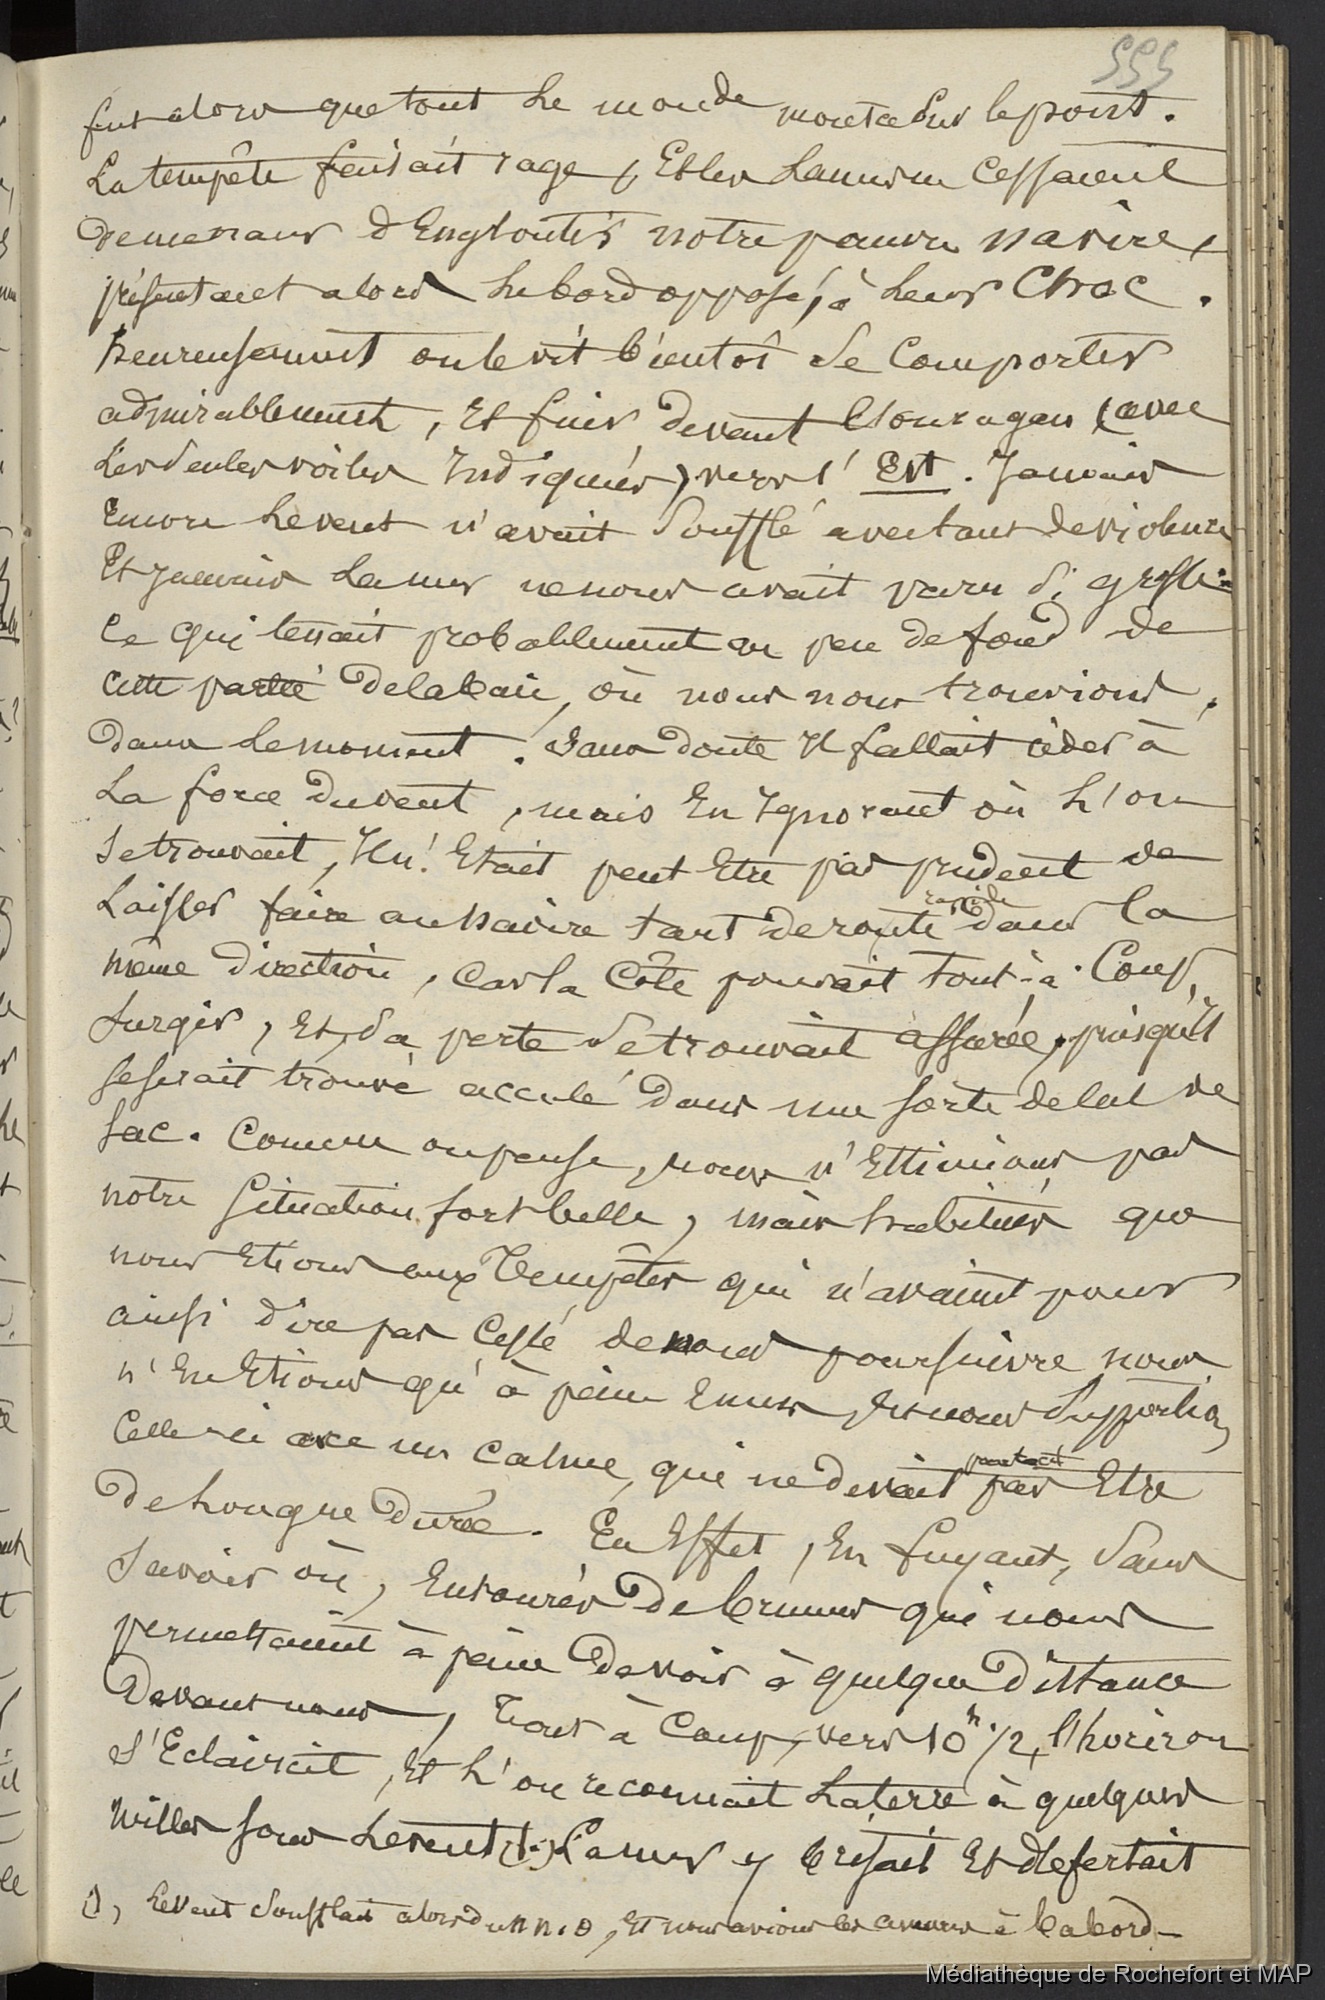 555
fut alors que tout le monde monta sur le pont.
La tempête faisait rage, Et les lames ne cessaient
de menacer d'Engloutir notre pauvre navire,
présentant alors le bord opposé, à leur Choc.
heureusement on le vit bientôt se Comporter
admirablement, Et fuir devant l'ouragan (avec
les seules voiles Indiquées) vers l'Est. Jamais
Encore le vent n'avait Soufflé avec tant de violence
Et jamais la mer ne nous avait paru si grosse:
Ce qui tenait probablement au peu de fond de
cette partie de la baie, où nous nous trouvions,
dans le moment. Sans doute Il fallait céder à
La force du vent, mais En Ignorant où l'on
se trouvait, Il n'Etait peut Etre pas prudent de
Laisser faire au navire tant de route rapide dans la
même direction, car la Côte pouvait tout-à-Coup,
surgir, Et, sa perte se trouvait assurée, puisqu'Il
se serait trouvé acculé dans une sorte de cul de
sac. Comme on pense, nous n'Estimions pas
notre Situation fort belle, mais habitués que
nous Etions aux Tempêtes qui n'avaient pour
ainsi dire pas Cessé de nous poursuivre nous
n'En Etions qu'à peine Emus, Et nous Supportions
Celle-ci avec un calme, qui ne devait partout pas Etre
De Longue Durée. En Effet, En fuyant, Sans
Savoir où, Entourés De brumes qui nous
permettaient à peine De voir à quelque Distance
Devant nous, Tout à Coup, vers 10h 1/2, l'horizon
S'Eclaircit, Et l'on reconnait La terre à quelques
Milles sous Le vent (1.) La mer y brisait Et deferlait
1), Le vent Soufflait alors du nn.o, Et nous avions les amures à babord_
Médiathèque de Rochefort et MAP